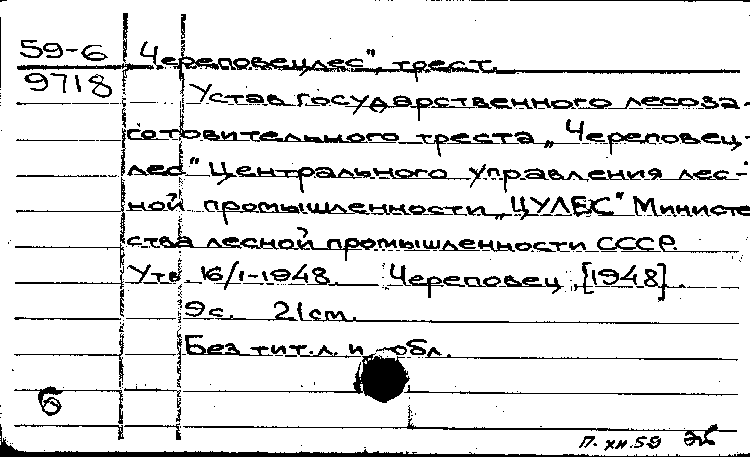 59-6 Череповецлес", трест.
9718
Устав государственного лесоза-
готовительного треста „Черeповец-
лес" Центрального управления лес-
ной промышленности „ЦУЛЕС" Министе
ства лесной промышленности СССР.
Утв 16/I-1948. Череповец, [1948].
9с. 21см.
Без тит.л. и обл.
б
П. хн.59